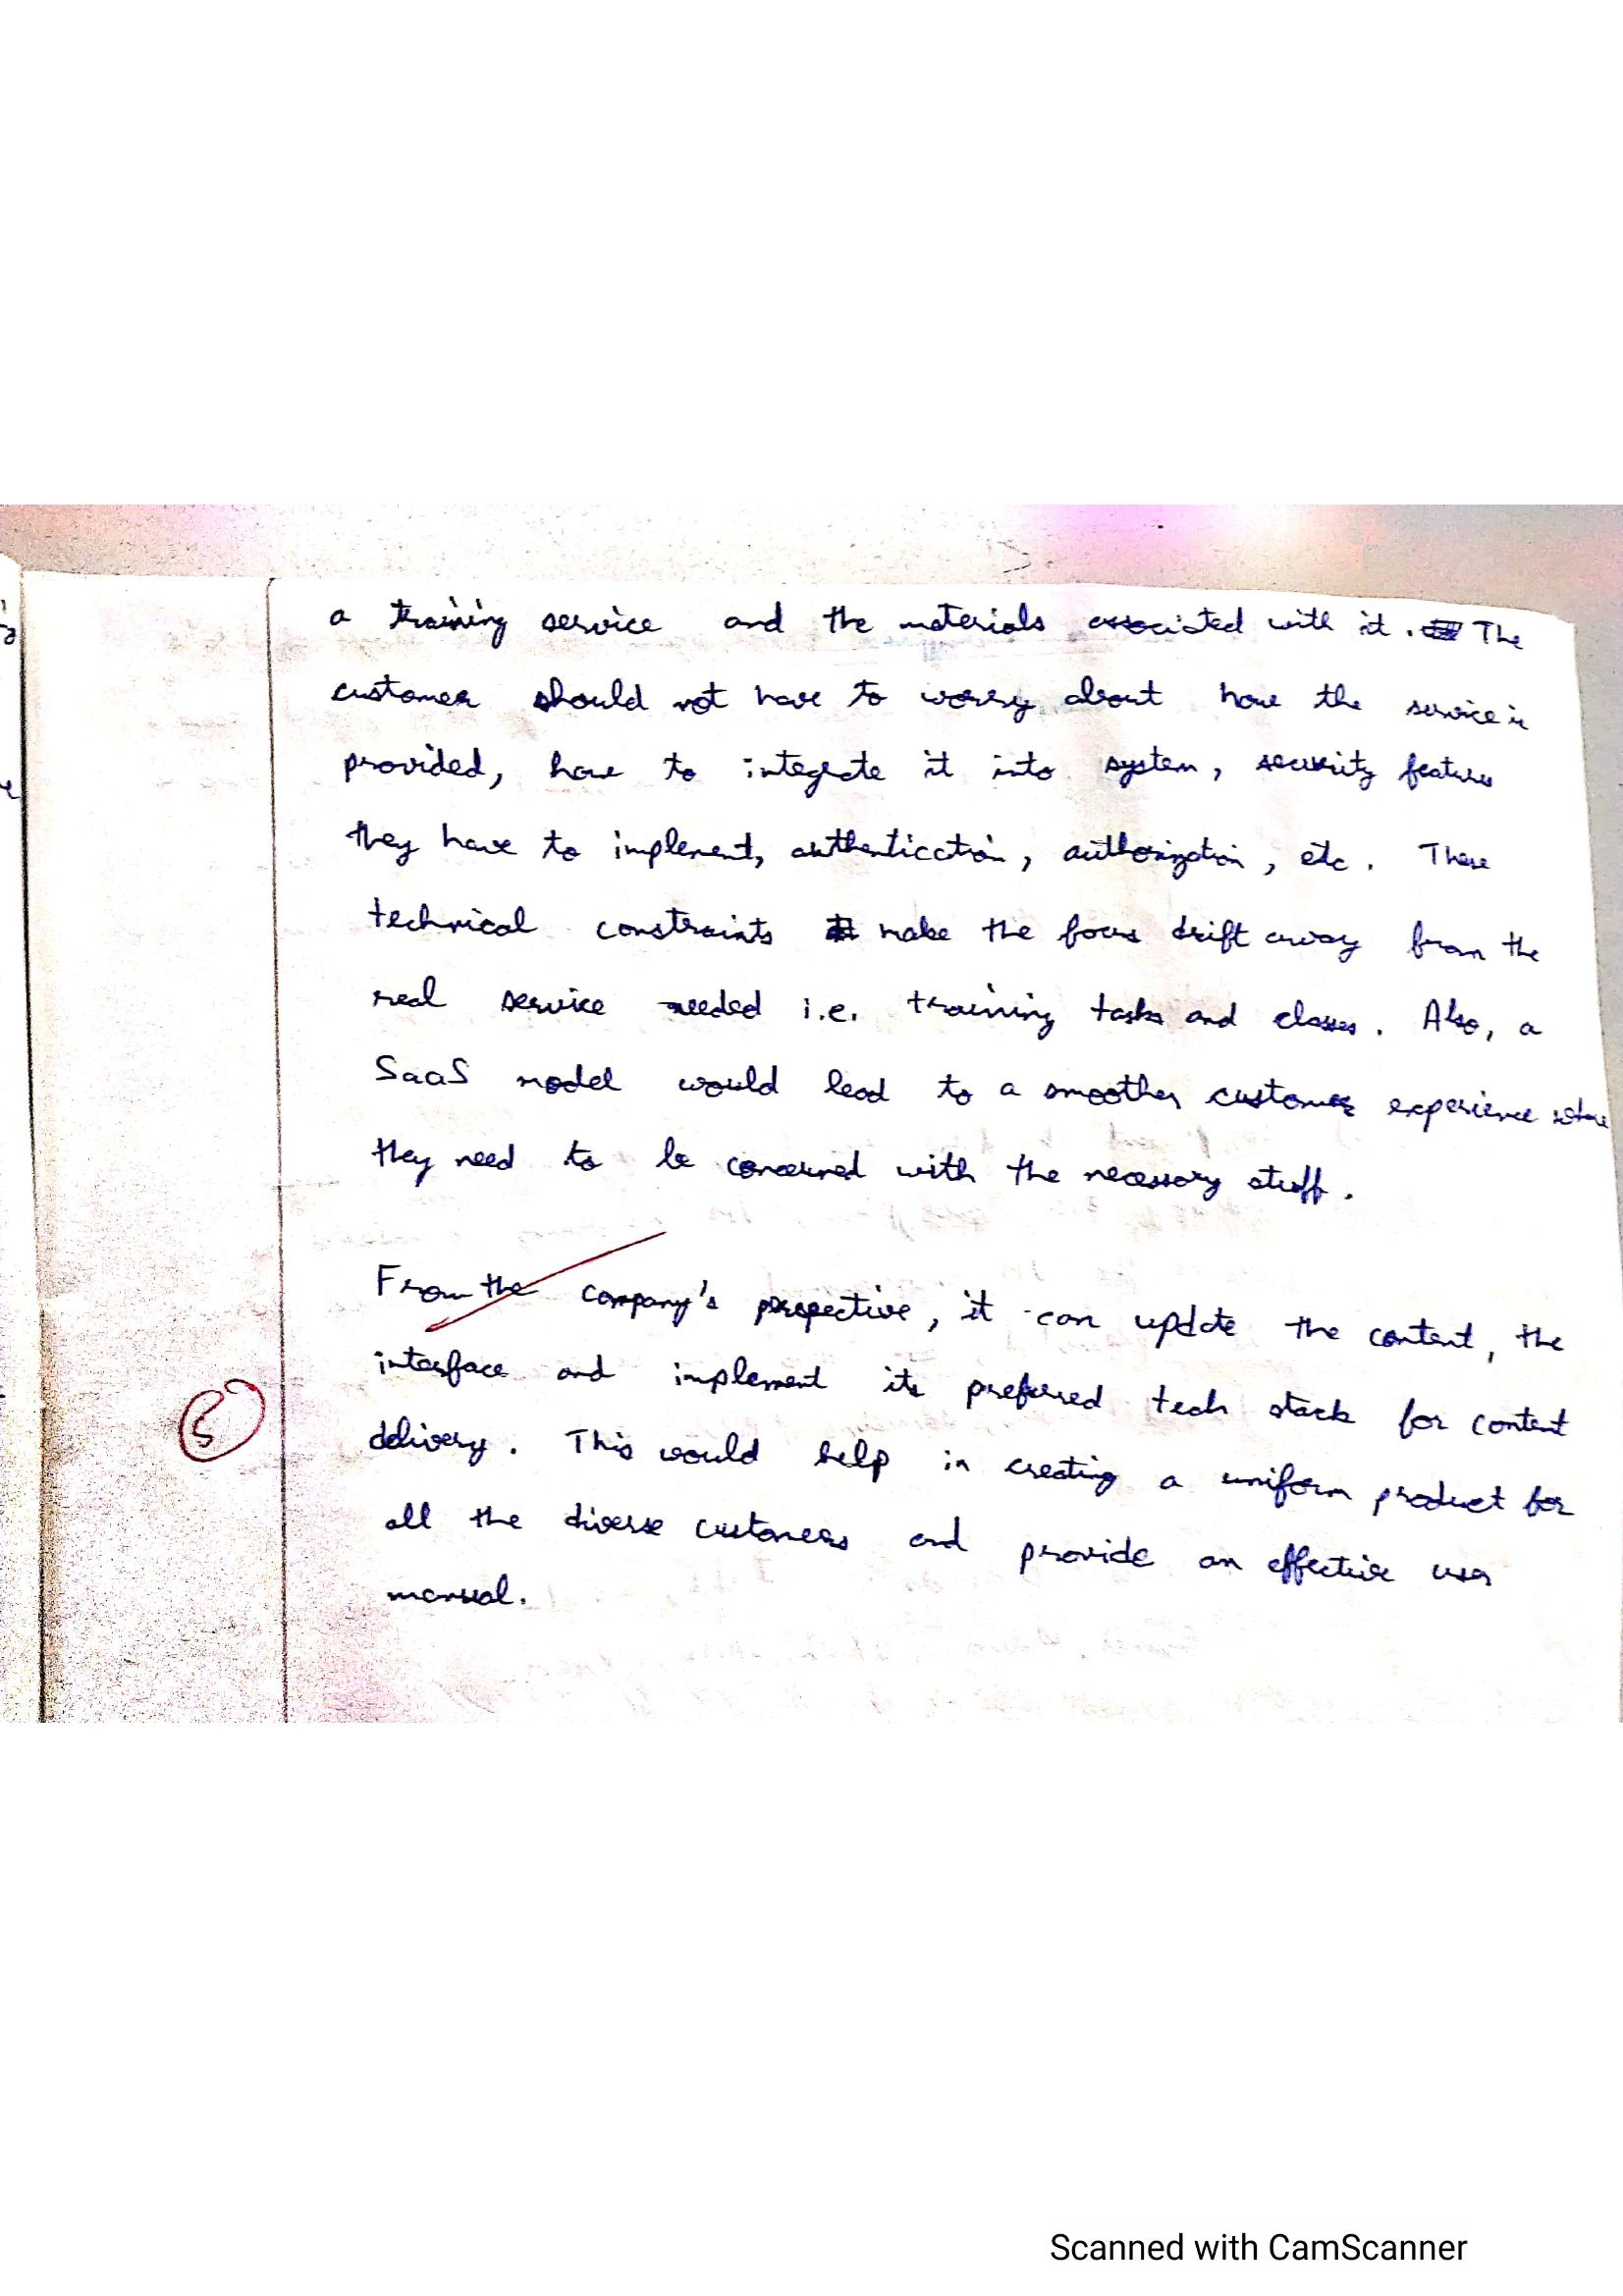 a training service and the materials associated with it. The
customer should not have to worry about how the service is
provided, how to integrate it into system, security features
they have to implement, authentication, authorization, etc. These
technical constraints make the focus drift away from the
real service needed i.e. training tasks and classes. Also, a
SaaS model would lead to a smoother customer experience where
they need to be concerned with the necessary stuff.
From the company's perspective, it can update the content, the
interface and implement its preferred tech stack for content
5
delivery. This would help in creating a uniform product for
all the diverse customers and provide an effective user
manual.
Scanned with CamScanner